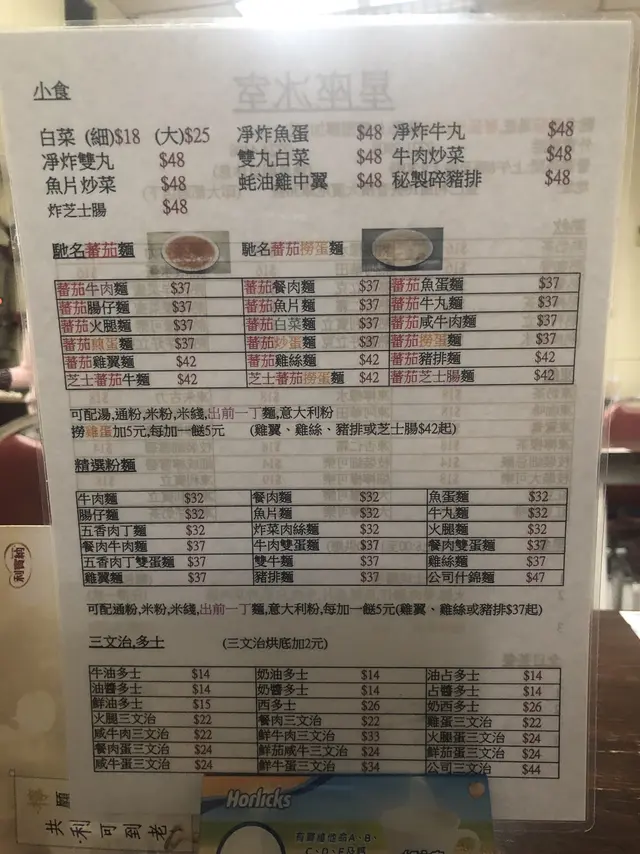 星座冰室
小食
白菜 (細)$18 (大)$25 凈炸魚蛋 $48 凈炸牛丸 $48
凈炸雙丸 $48 雙丸白菜 $48 牛肉炒菜 $48
魚片炒菜 $48 蚝油雞中翼 $48 秘製碎豬排 $48
炸芝士腸 $48
馳名蕃茄麵 馳名蕃茄撈蛋麵
蕃茄牛肉麵 $37 蕃茄餐肉麵 $37 蕃茄魚蛋麵 $37
蕃茄腸仔麵 $37 蕃茄魚片麵 $37 蕃茄牛丸麵 $37
蕃茄火腿麵 $37 蕃茄白菜麵 $37 蕃茄咸牛肉麵 $37
蕃茄煎蛋麵 $37 蕃茄炒蛋麵 $37 蕃茄撈蛋麵 $37
蕃茄雞翼麵 $42 蕃茄雞絲麵 $42 蕃茄豬排麵 $42
芝士蕃茄牛麵 $42 芝士蕃茄撈蛋麵 $42 蕃茄芝士腸麵 $42
可配湯,通粉,米粉,米綫,出前一丁麵,意大利粉
撈雞蛋加5元,每加一餸5元 (雞翼、雞絲、豬排或芝士腸$42起)
精選粉麵
牛肉麵 $32 餐肉麵 $32 魚蛋麵 $32
腸仔麵 $32 魚片麵 $32 牛丸麵 $32
五香肉丁麵 $32 炸菜肉絲麵 $32 火腿麵 $32
餐肉牛肉麵 $37 牛肉雙蛋麵 $37 餐肉雙蛋麵 $37
五香肉丁雙蛋麵 $37 雙牛麵 $37 雞絲麵 $37
雞翼麵 $37 豬排麵 $37 公司什錦麵 $47
可配通粉,米粉,米綫,出前一丁麵,意大利粉,每加一餸5元(雞翼、雞絲或豬排$37起)
三文治,多士 (三文治烘底加2元)
牛油多士 $14 奶油多士 $14 油占多士 $14
油醬多士 $14 奶醬多士 $14 占醬多士 $14
鮮油多士 $15 西多士 $26 奶西多士 $26
火腿三文治 $22 餐肉三文治 $22 雞蛋三文治 $22
咸牛肉三文治 $22 鮮牛肉三文治 $33 火腿蛋三文治 $24
餐肉蛋三文治 $24 鮮茄咸牛三文治 $24 鮮茄蛋三文治 $24
咸牛蛋三文治 $24 鮮牛蛋三文治 $34 公司三文治 $44
Horlicks
有豐維他命A、B、
C、D、E及鈣
願
共利可到老
利賓納